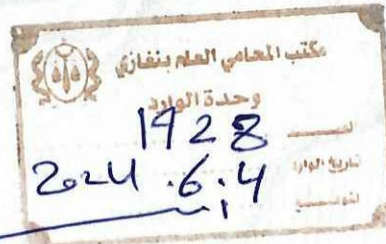 مكتب المحامي العام بنغازي
وحدة الوارد
1928
تاريخ الوارد 2024.6.4
التوقيع